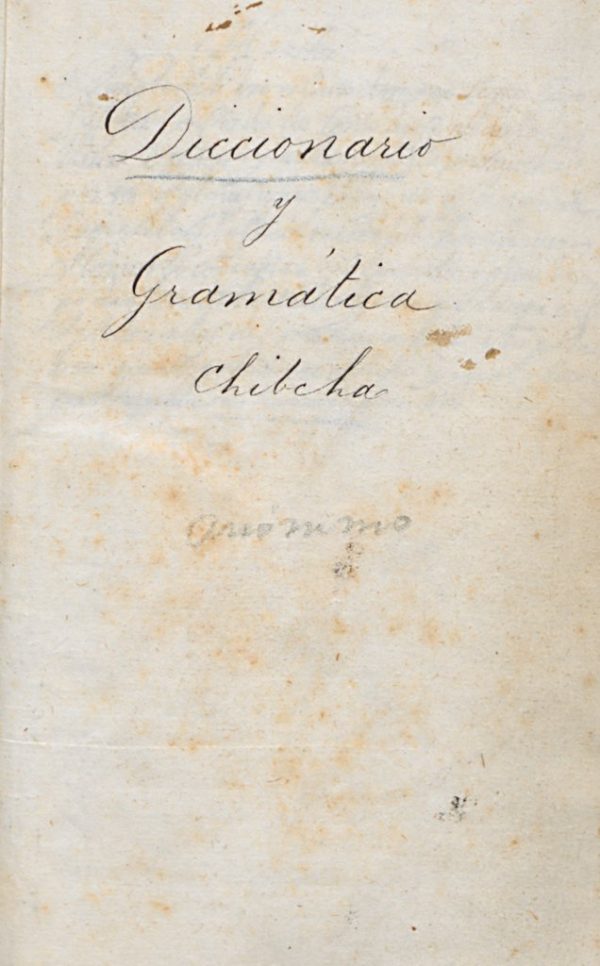 Diccionario
y
Gramática
Chibcha
anónimo